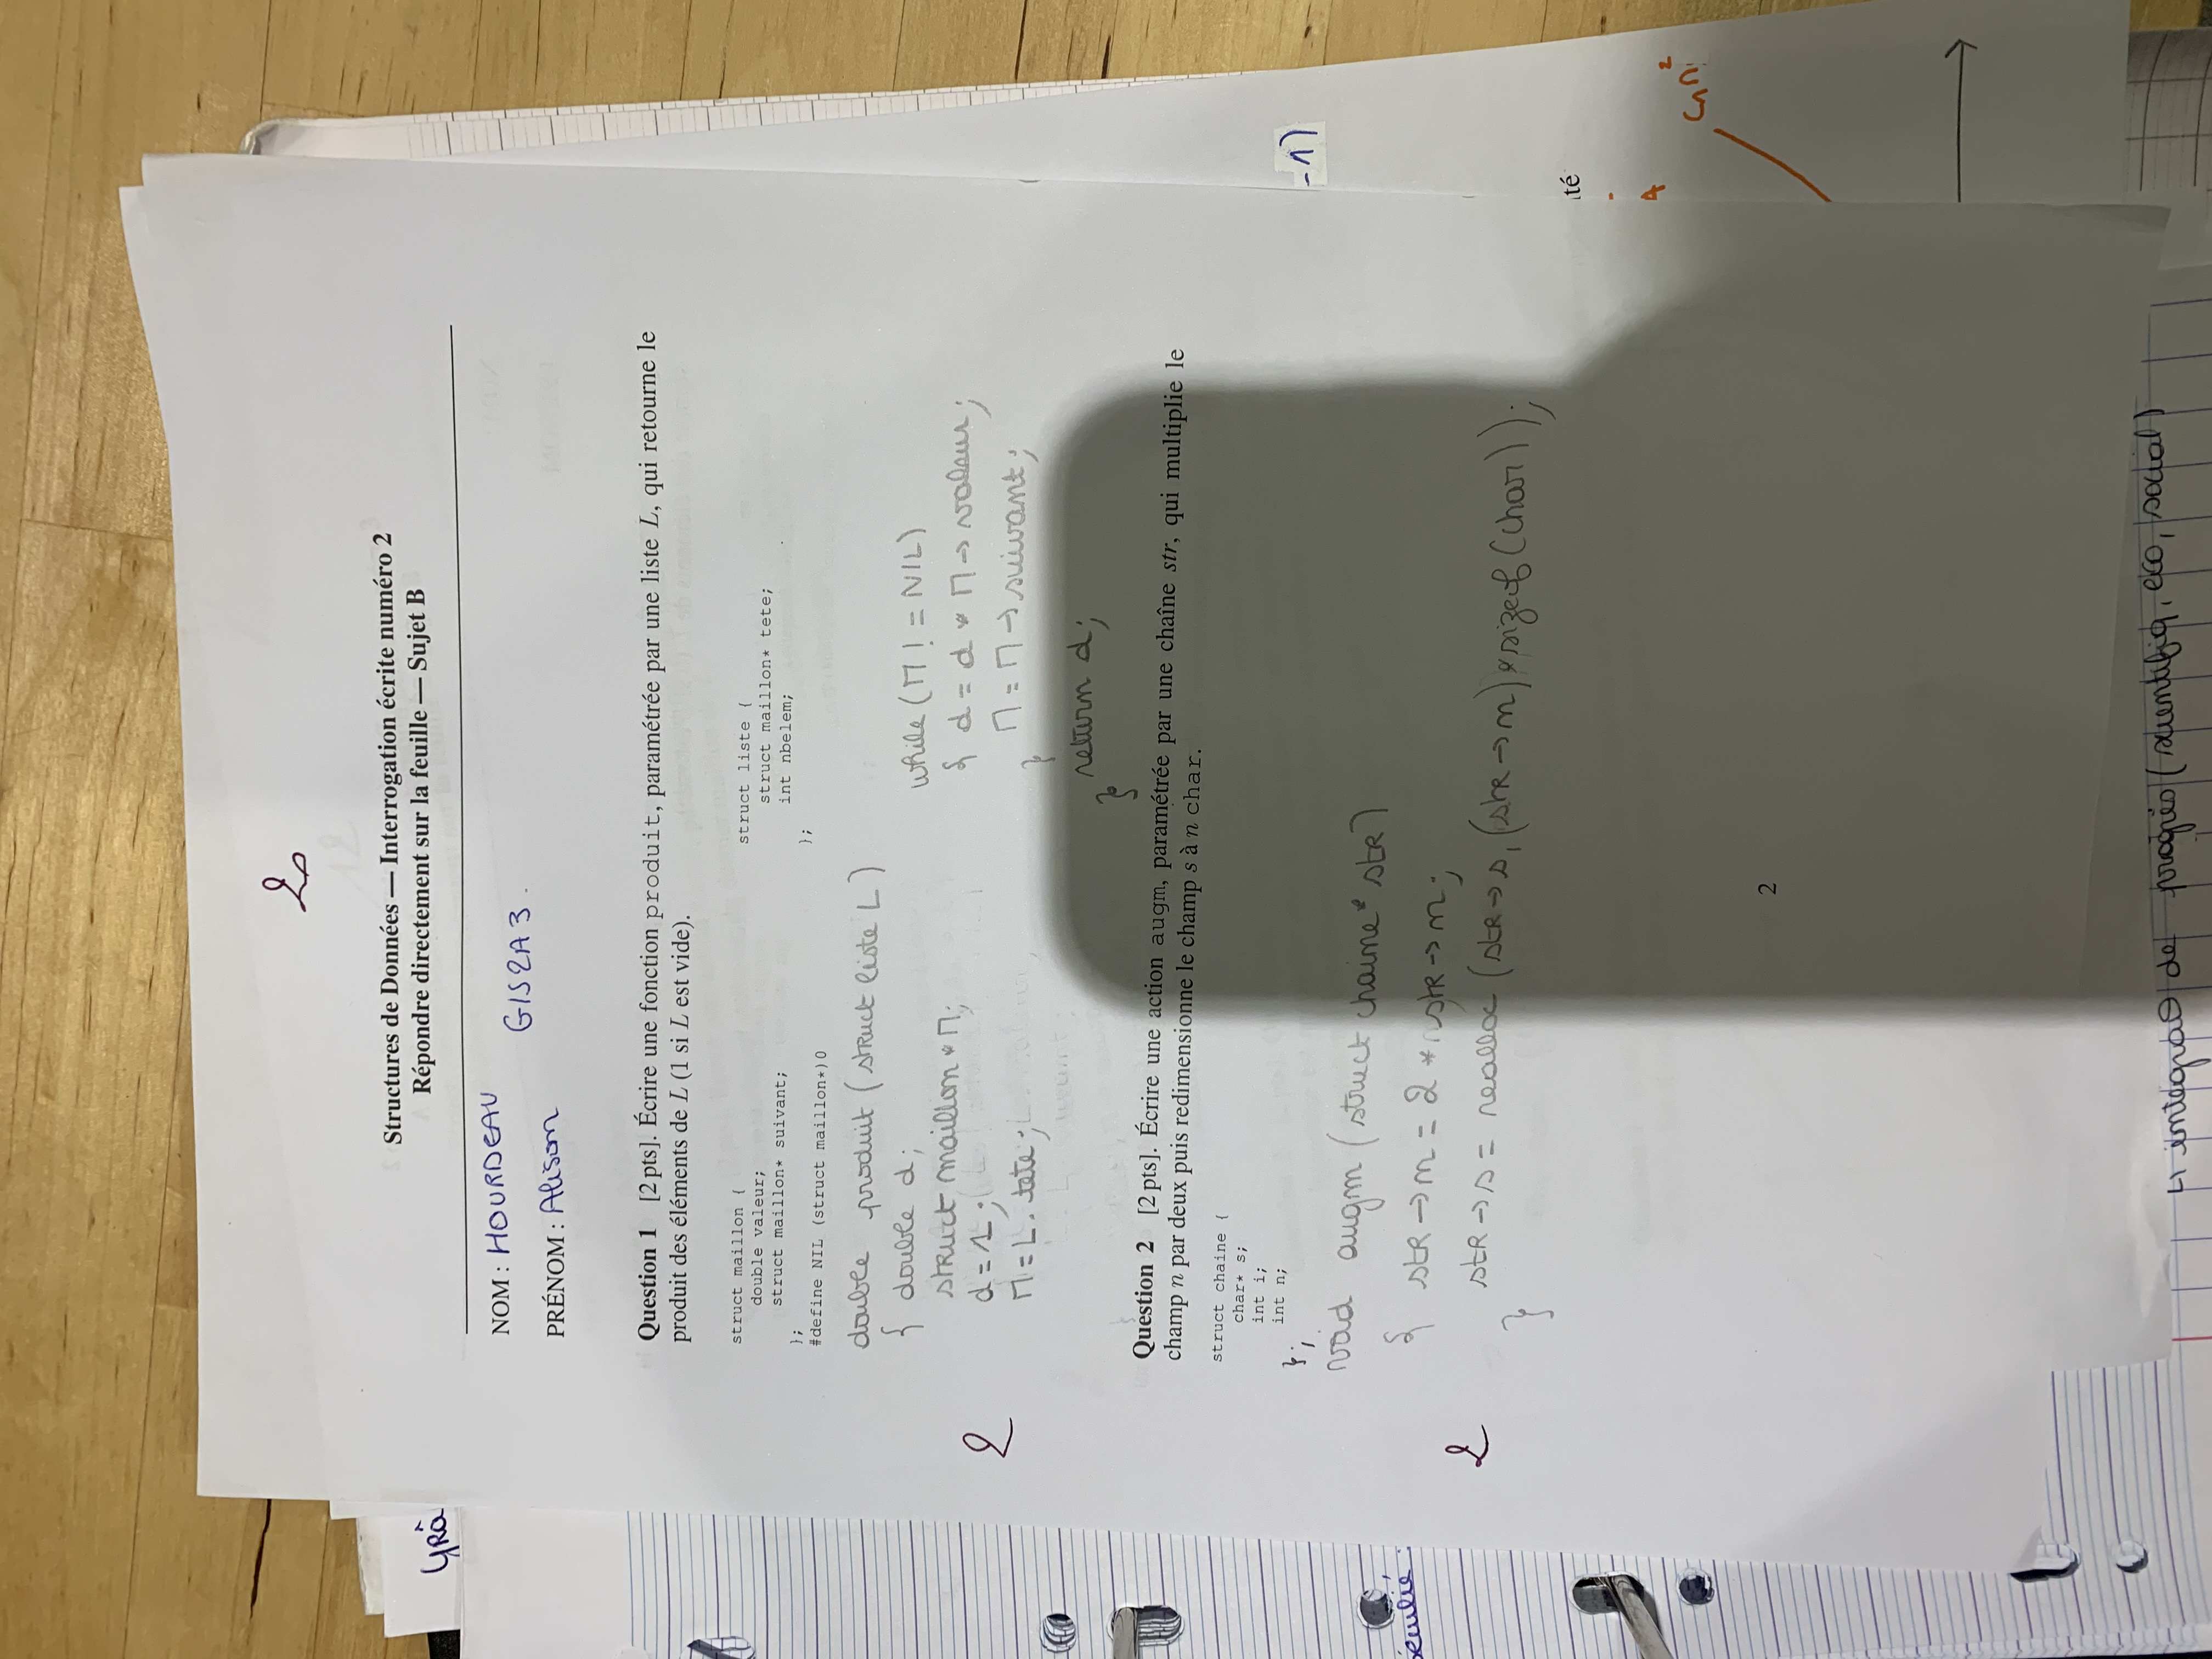 20
Structures de Données — Interrogation écrite numéro 2
Répondre directement sur la feuille — Sujet B
GRÂ
NOM : HOURDEAU
GIS2A3.
PRÉNOM : Alison
Question 1 [2 pts]. Écrire une fonction produit, paramétrée par une liste L, qui retourne le
produit des éléments de L (1 si L est vide).
struct maillon {
double valeur;
struct maillon* suivant;
};
#define NIL (struct maillon*)0
struct liste {
struct maillon* tete;
int nbelem;
};
double produit (struct liste L)
{ double d;
struct maillon * M;
d = 1;
M = L.tete;
while (M != NIL)
{ d = d * M->valeur;
M = M->suivant;
}
return d;
}
2
Question 2 [2 pts]. Écrire une action augm, paramétrée par une chaîne str, qui multiplie le
champ n par deux puis redimensionne le champ s à n char.
struct chaine {
char* s;
int i;
int n;
};
void augm (struct chaine* str)
{ str->n = 2 * str->n;
str->s = realloc (str->s, (str->n) * sizeof(char));
}
2
2
-1)
ité
4
C₁n²
↳ intégraθ de progrès (scientifiq, eco, social)